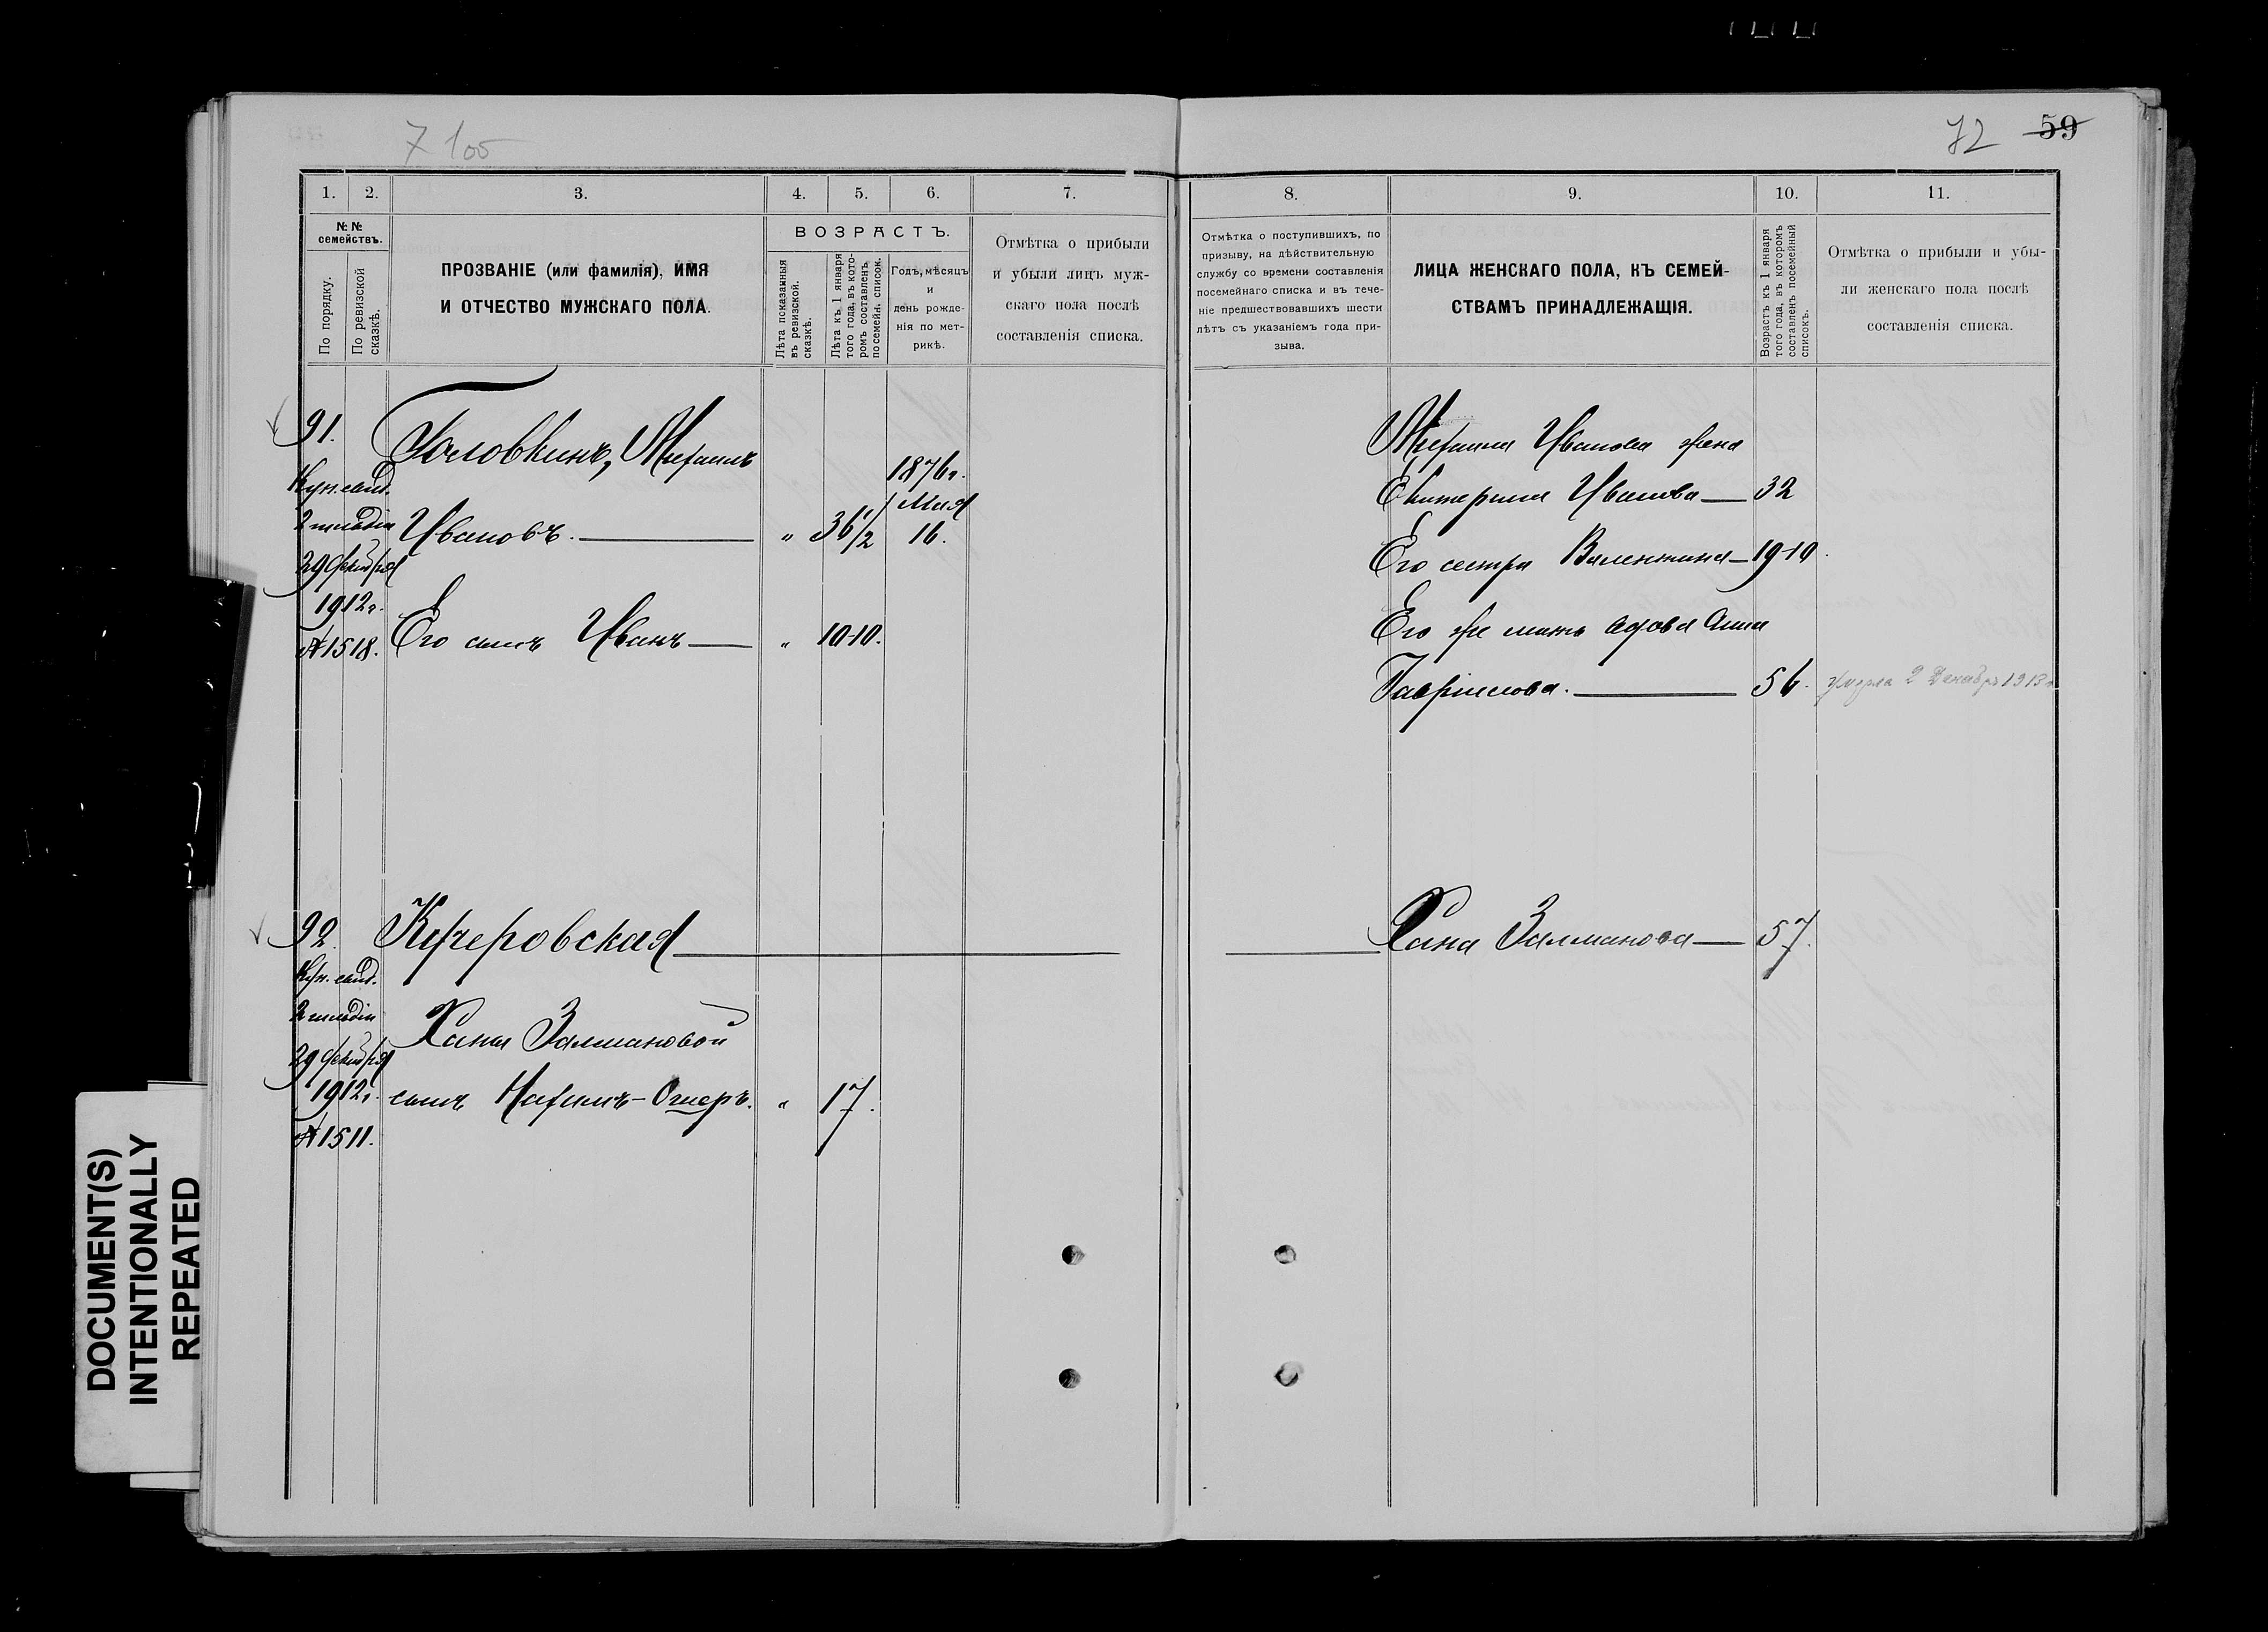 7 100
72 59
1. 2. 3. 4. 5. 6. 7.
№№ семействъ.
По порядку.
По ревизской сказкѣ.
ПРОЗВАНІЕ (или фамилія), ИМЯ
И ОТЧЕСТВО МУЖСКАГО ПОЛА.
ВОЗРАСТЪ.
Лѣта показанныя въ ревизской сказкѣ.
Лѣта къ 1 января того года, въ которомъ составленъ посемейн. список.
Годъ, мѣсяцъ
и
день рожде-
нія по мет-
рикѣ.
Отмѣтка о прибыли
и убыли лицъ муж-
скаго пола послѣ
составленія списка.
91.
Куп. свид.
2 гильдіи
29 Декабря
1912 г.
№ 1518.
Головкинъ, Михаилъ
Ивановъ. — „ 36 1/2
1876 г.
Мая
16.
Его сынъ Иванъ — „ 10-10.
92.
Куп. свид.
2 гильдіи
29 Декабря
1912 г.
№ 1511.
Кучеровская
Ханы Залмановой
сынъ Нахимъ-Ошеръ. „ 17.
8. 9. 10. 11.
Отмѣтка о поступившихъ, по
призыву, на дѣйствительную
службу со времени составленія
посемейнаго списка и въ тече-
ніе предшествовавшихъ шести
лѣтъ съ указаніемъ года при-
зыва.
ЛИЦА ЖЕНСКАГО ПОЛА, КЪ СЕМЕЙ-
СТВАМЪ ПРИНАДЛЕЖАЩІЯ.
Возрастъ къ 1 января
того года, въ которомъ
составленъ посемейный
списокъ.
Отмѣтка о прибыли и убы-
ли женскаго пола послѣ
составленія списка.
Михаила Иванова жена
Екатерина Иванова — 32
Его сестра Валентина — 19-10.
Его же мать вдова Анна
Гавріилова. — 56. умерла 2 Декабр. 1913 г.
Хана Залманова — 57.
DOCUMENT(S)
INTENTIONALLY
REPEATED